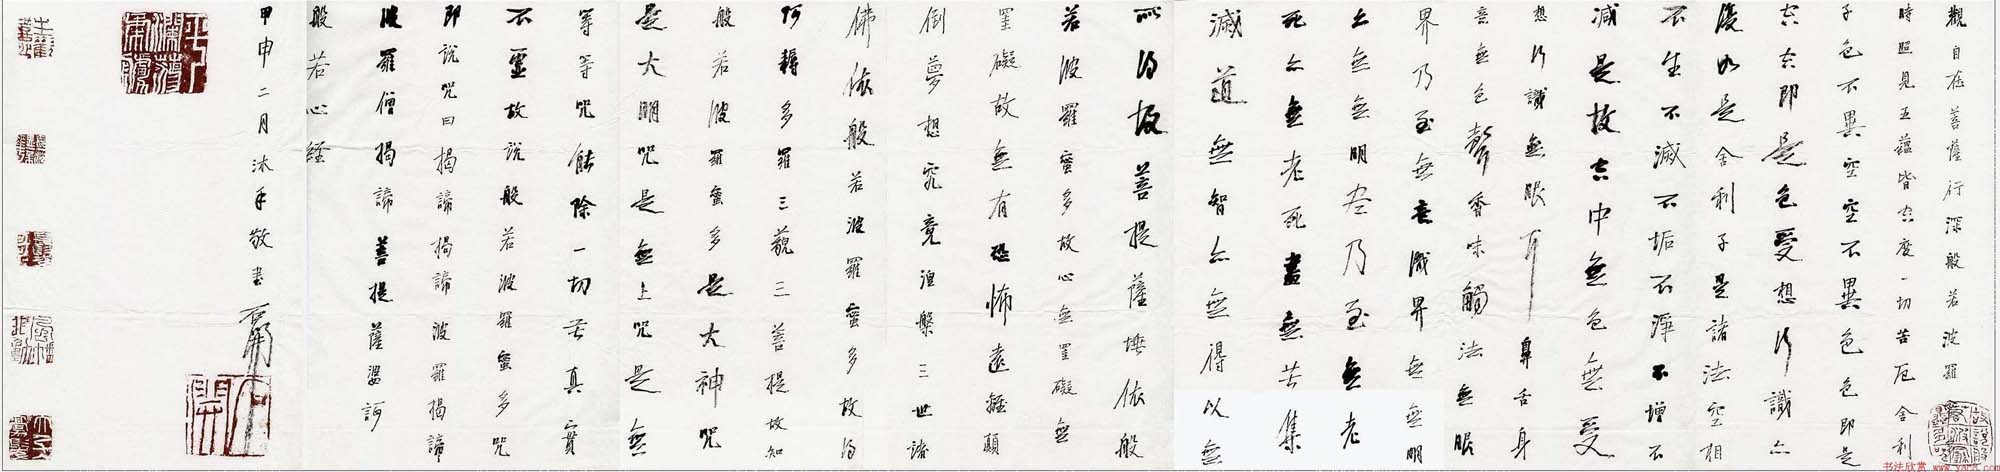 觀自在菩薩行深般若波羅
時照見五蘊皆空度一切苦厄舍利
子色不異空空不異色色即是
空空即是色受想行識亦
復如是舍利子是諸法空相
不生不滅不垢不淨不增不
減是故空中無色無受
想行識無眼耳鼻舌身
意無色聲香味觸法無眼
界乃至無意識界無無明
亦無無明盡乃至無老
死亦無老死盡無苦集
滅道無智亦無得以無
所得故菩提薩埵依般
若波羅蜜多故心無罣礙無
罣礙故無有恐怖遠離顛
倒夢想究竟涅槃三世諸
佛依般若波羅蜜多故得
阿耨多羅三藐三菩提故知
般若波羅蜜多是大神咒
是大明咒是無上咒是無
等等咒能除一切苦真實
不虛故說般若波羅蜜多咒
即說咒曰揭諦揭諦波羅揭諦
波羅僧揭諦菩提薩婆訶
般若心經
甲申二月沐手敬書石開
石開
书法欣赏